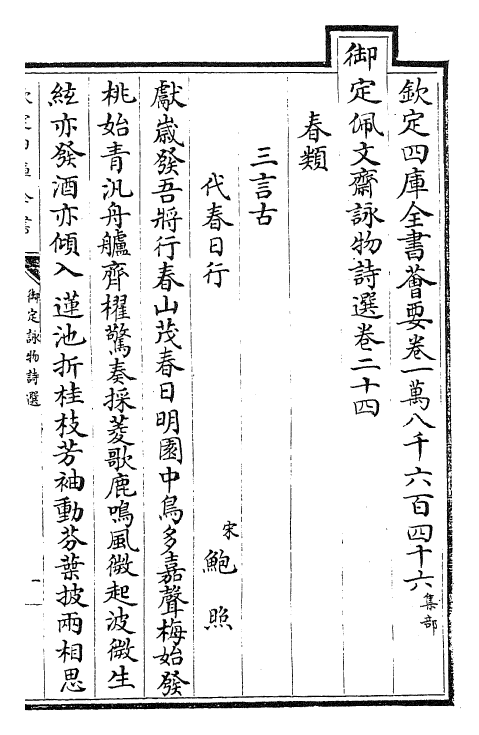 欽定四庫全書薈要卷一萬八千六百四十六集部
御定佩文齋詠物詩選卷二十四
春類
三言古
代春日行 宋 鮑照
獻歲發吾將行春山茂春日明園中鳥多嘉聲梅始發
桃始青汎舟艫齊櫂驚奏採菱歌鹿鳴風微起波微生
絃亦發酒亦傾入蓮池折桂枝芳袖動芬葉披兩相思
御定詠物詩選
一